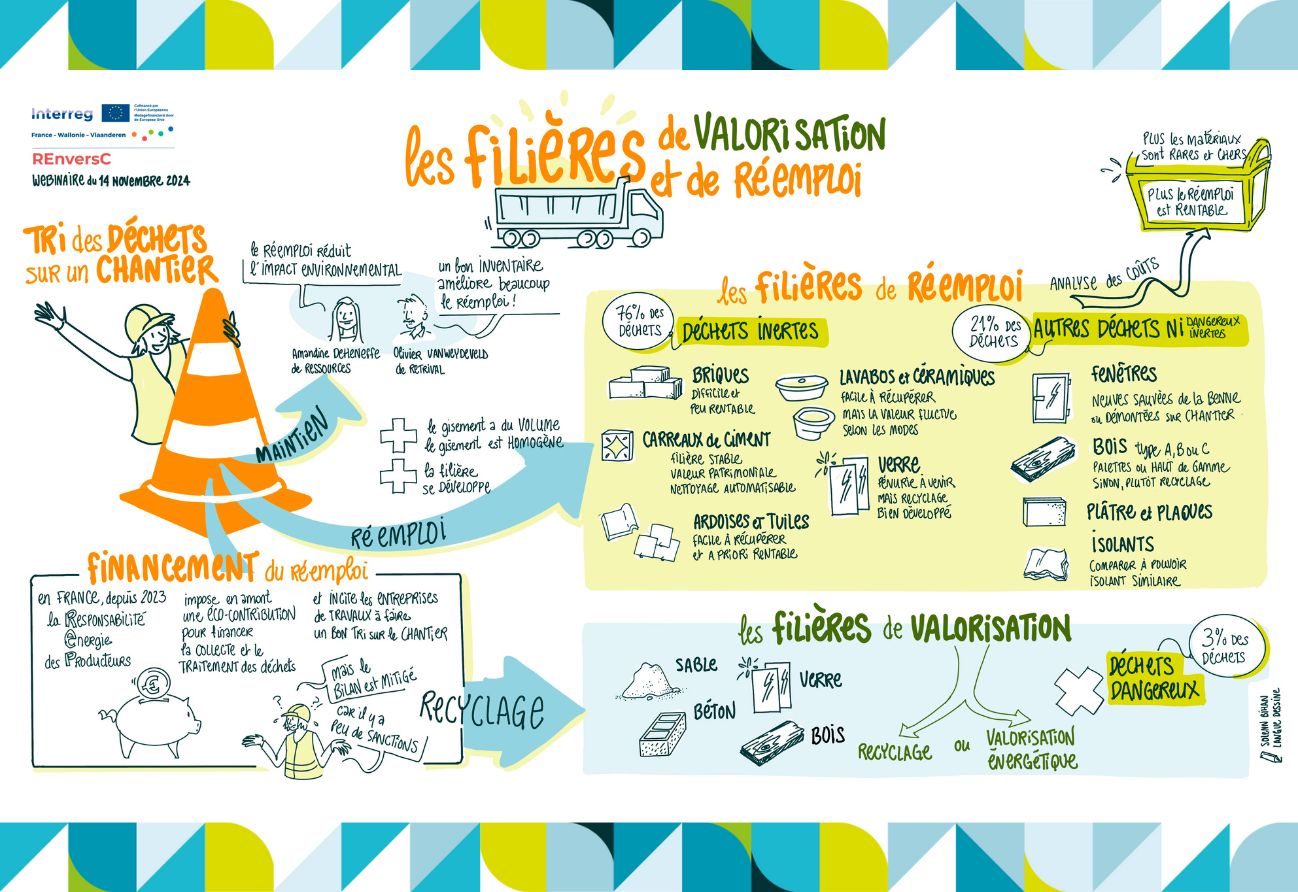 Interreg
Cofinancé par
l'Union Européenne
Medegefinancierd door
de Europese Unie
France - Wallonie - Vlaanderen
REnversC
WEBINAIRE du 14 NOVEMBRE 2024
les FILIÈRES de VALORISATION
et de RÉEMPLOI
TRI des DÉCHETS
SUR UN CHANTIER
le RÉEMPLOI RÉDUIT
l'IMPACT ENVIRONNEMENTAL
un bon INVENTAIRE
améliore beaucoup
le réemploi !
Amandine DEHENEFFE
de RESSOURCES
Olivier VANWEYDEVELD
de RETRIVAL
MAINTIEN
le gisement a du VOLUME
le gisement est HOMOGÈNE
la filière
se DÉVELOPPE
RÉEMPLOI
FINANCEMENT du RÉEMPLOI
en FRANCE, depuis 2023
la RESPONSABILITÉ
énergie
des PRODUCTEURS
impose en amont
une ÉCO-CONTRIBUTION
pour financer
la COLLECTE et le
TRAITEMENT des déchets
et INCITE les ENTREPRISES
de TRAVAUX à faire
un BON TRI sur le CHANTIER
€
mais le
BILAN est MITIGÉ
car il y a
peu de SANCTIONS
RECYCLAGE
PLUS les MATÉRIAUX
sont RARES et CHERS
PLUS le RÉEMPLOI
est RENTABLE
ANALYSE des COÛTS
les FILIÈRES de RÉEMPLOI
76% DES
DÉCHETS
DÉCHETS INERTES
BRIQUES
DIFFICILE et
PEU RENTABLE
CARREAUX de CIMENT
FILIÈRE STABLE
VALEUR PATRIMONIALE
NETTOYAGE AUTOMATISABLE
ARDOISES et TUILES
FACILE À RÉCUPÉRER
et A PRIORI RENTABLE
LAVABOS et CÉRAMIQUES
FACILE À RÉCUPÉRER
MAIS LA VALEUR FLUCTUE
SELON LES MODES
VERRE
PÉNURIE À VENIR
MAIS RECYCLAGE
BIEN DÉVELOPPÉ
21% DES
DÉCHETS
AUTRES DÉCHETS NI DANGEREUX
INERTES
FENÊTRES
NEUVES SAUVÉES de la BENNE
ou DÉMONTÉES SUR CHANTIER
BOIS TYPE A, B ou C
PALETTES ou HAUT de GAMME
SINON, PLUTÔT RECYCLAGE
PLÂTRE et PLAQUES
ISOLANTS
COMPARER À POUVOIR
ISOLANT SIMILAIRE
les FILIÈRES de VALORISATION
SABLE
BÉTON
VERRE
BOIS
RECYCLAGE ou VALORISATION
ÉNERGÉTIQUE
3% DES
DÉCHETS
DÉCHETS
DANGEREUX
SOLENN BIHAN
LANGUE DESSINE